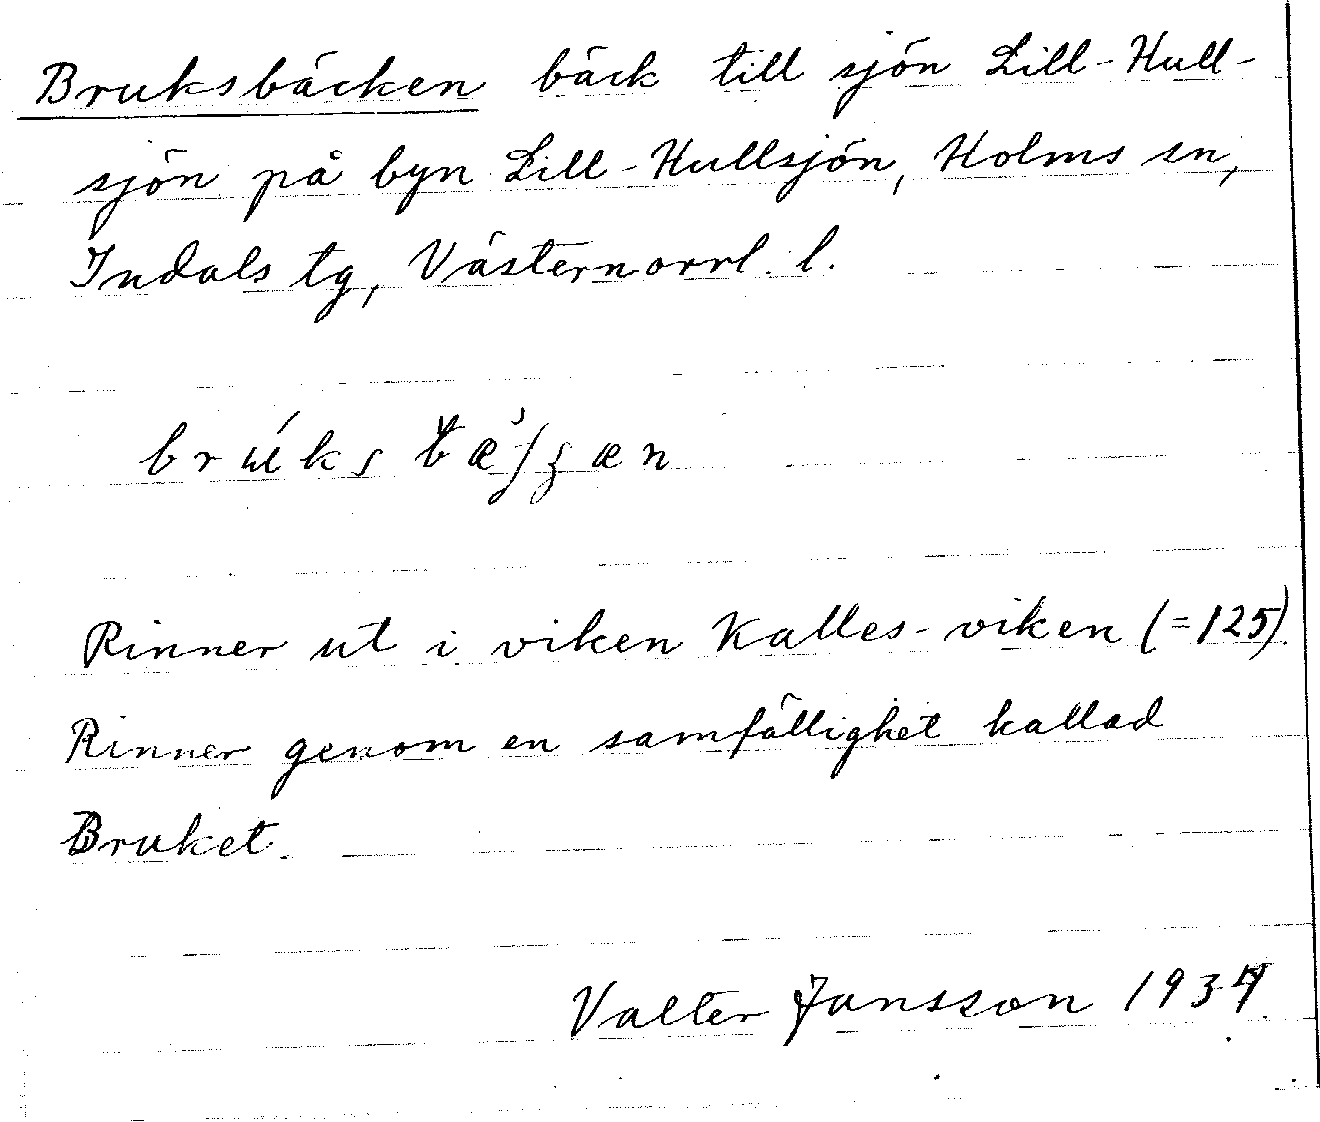 Bruksbäcken bäck till sjön Lill-Hull-
sjön på byn Lill-Hullsjön, Holms sn,
Indals tg, Västernorrl. l.
Rinner ut i viken Kalles-viken (=125)
Rinner genom en samfällighet kallad
Bruket.
Valter Jansson